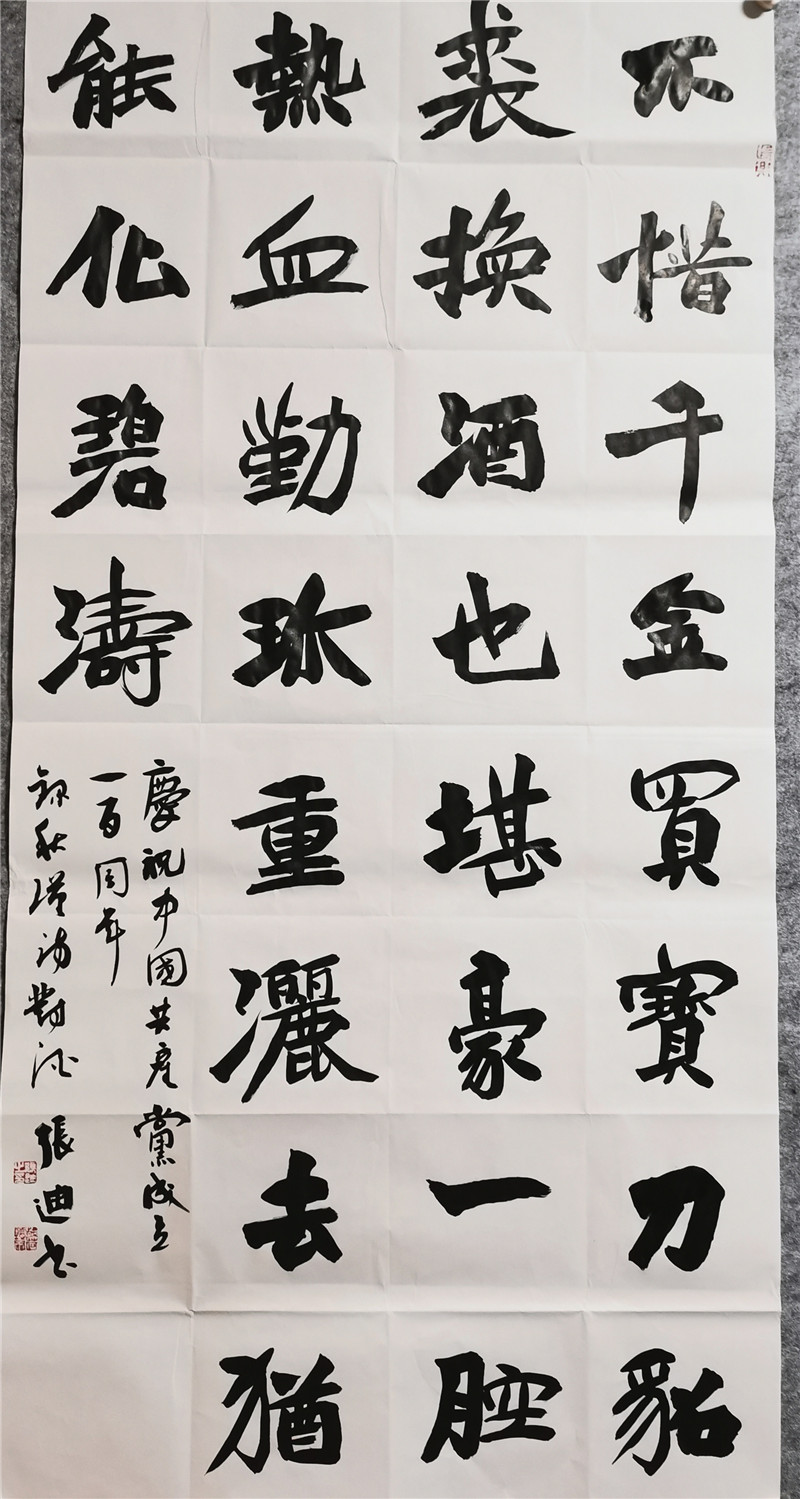 不惜千金買寶刀貂
裘換酒也堪豪一腔
熱血勤珎重灑去猶
能化碧濤
慶祝中國共産黨成立
一百周年
録秋瑾詩對酒 張迪书